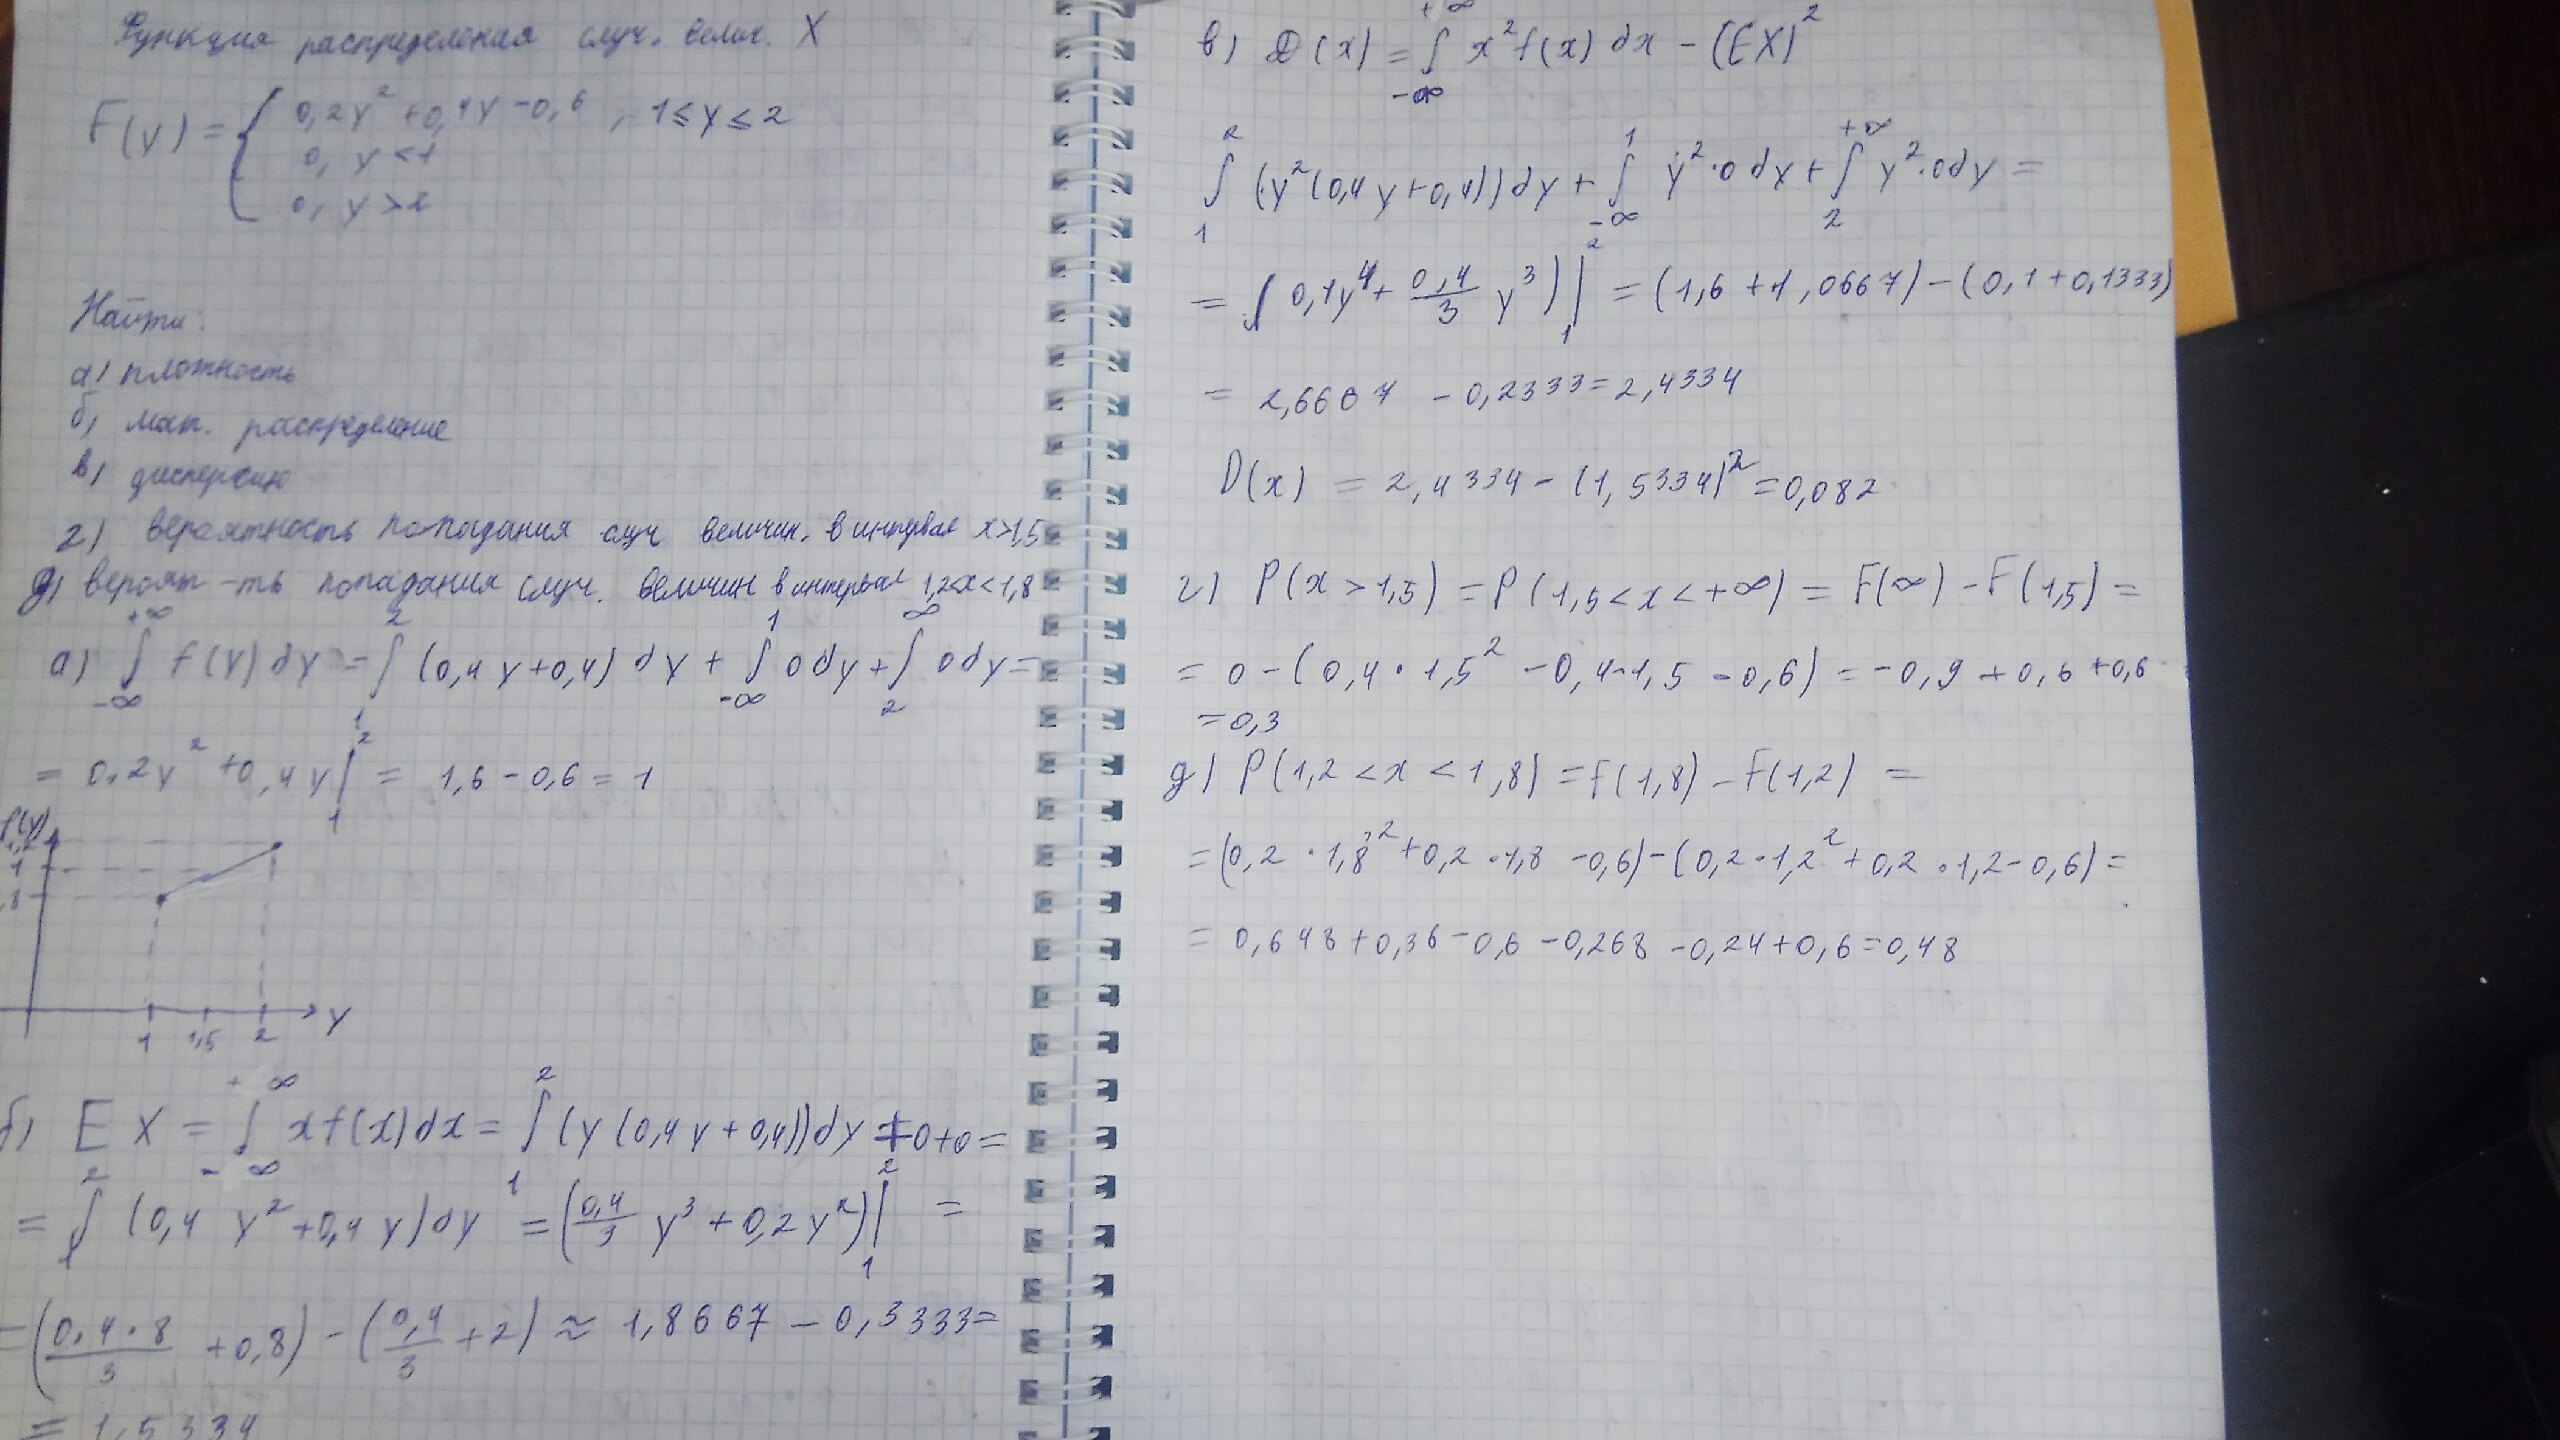 Функция распределения случ. велич. X
F(y) = { 0,2y² + 0,4y - 0,6 , 1 ≤ y ≤ 2
0, y < 1
0, y > 2
Найти:
а) плотность
б) мат. распределение
в) дисперсию
г) вероятность попадания случ величин. в интервал x>1,5
д) вероят-ть попадания случ. величин в интервал 1,2<x<1,8
а) ∫_{-∞}^{+∞} f(y) dy = ∫_1^2 (0,4y+0,4) dy + ∫_{-∞}^1 0dy + ∫_2^∞ 0dy =
= 0,2y² + 0,4y |_1^2 = 1,6 - 0,6 = 1
f(y)
1
,8
1 1,5 2 y
б) EX = ∫_{-∞}^{+∞} x f(x) dx = ∫_1^2 (y(0,4y+0,4))dy + 0+0 =
= ∫_1^2 (0,4 y² + 0,4y)dy = (0,4/3 y³ + 0,2y²)|_1^2 =
= (0,4·8/3 + 0,8) - (0,4/3 + 2) ≈ 1,8667 - 0,3333 =
= 1,5334
в) D(x) = ∫_{-∞}^{+∞} x² f(x) dx - (EX)²
∫_1^2 (y²(0,4y+0,4))dy + ∫_{-∞}^1 y²·0dy + ∫_2^{+∞} y²·0dy =
= (0,1y⁴ + 0,4/3 y³)|_1^2 = (1,6 + 1,0667) - (0,1 + 0,1333)
= 2,6667 - 0,2333 = 2,4334
D(x) = 2,4334 - (1,5334)² = 0,082
г) P(x > 1,5) = P(1,5 < x < +∞) = F(∞) - F(1,5) =
= 0 - (0,4·1,5² - 0,4·1,5 - 0,6) = -0,9 + 0,6 + 0,6
= 0,3
д) P(1,2 < x < 1,8) = F(1,8) - F(1,2) =
= (0,2·1,8² + 0,2·1,8 - 0,6) - (0,2·1,2² + 0,2·1,2 - 0,6) =
= 0,648 + 0,36 - 0,6 - 0,268 - 0,24 + 0,6 = 0,48